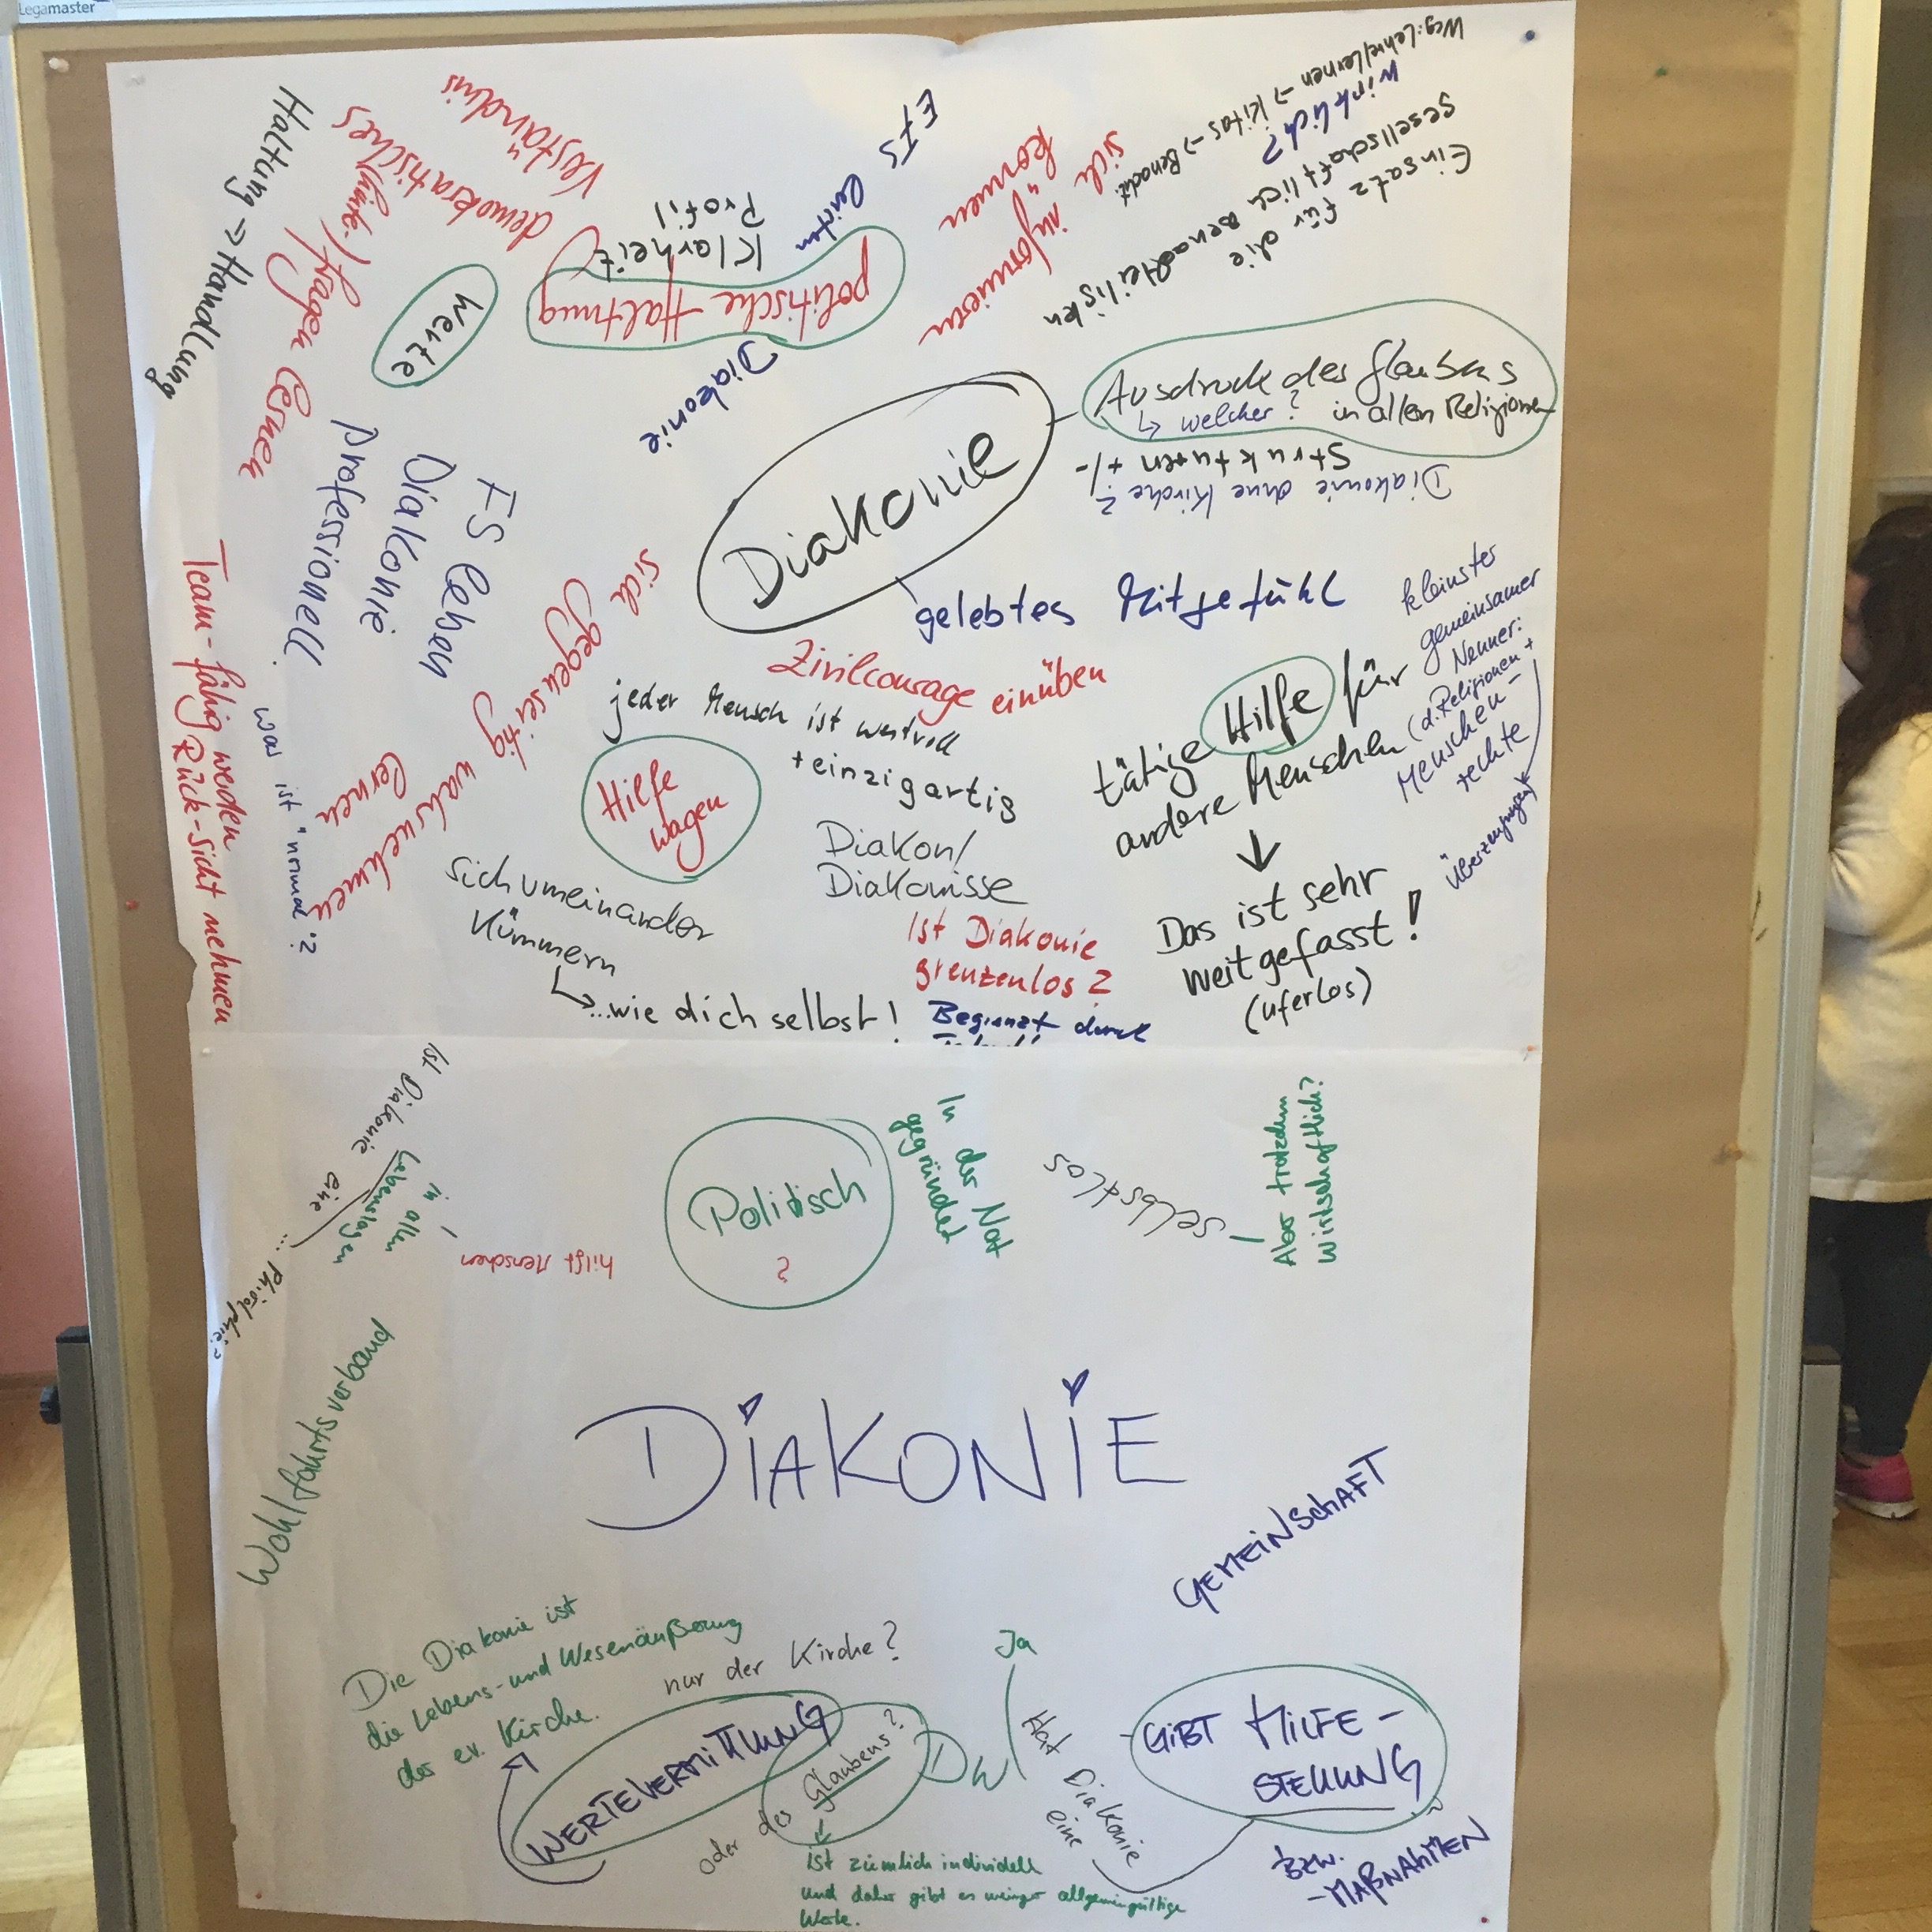 Legamaster
Haltung → Handlung
demokratisches
Verständnis
fragen lernen
Werte
politische Haltung
Klarheit
Profil
EFS leiten
Diakonie
sich informieren
können
Weg: Lehre/Lernen → Kitas → Benacht.
wirklich?
Einsatz für die
gesellschaftlich Benachteiligten
Diakonie
Ausdruck des Glaubens
↳ welcher? in allen Religionen
Strukturen +/-
Diakonie ohne Kirche?
gelebtes Mitgefühl
FS leben
Diakonie
professionell
Team-fähig werden
Rück-sicht nehmen
was ist "normal"?
sich gegenseitig wahrnehmen
lernen
Zivilcourage einüben
jeder Mensch ist wertvoll
+ einzigartig
Hilfe
wagen
tätige Hilfe für
andere Menschen
↓
Das ist sehr
weit gefasst!
(uferlos)
kleinster
gemeinsamer
Nenner:
(d. Religionen +
Menschen-
rechte
Überzeugungen
Diakon/
Diakonisse
sich umeinander
kümmern
↳ ...wie dich selbst!
Ist Diakonie
grenzenlos?
Begrenzt durch
Ist Diakonie eine
... Philosophie?
in allen
Lebenslagen
hilft Menschen
Politisch
?
In der Not
gegründet
selbstlos
Aber trotzdem
wirtschaftlich?
Wohlfahrtsverband
DIAKONIE
GEMEINSCHAFT
Die Diakonie ist
die Lebens- und Wesenäußerung
der ev. Kirche.
nur der Kirche?
WERTEVERMITTLUNG
oder des Glaubens?
DW
Ja
Hat Diakonie
eine
GIBT HILFE-
STELLUNG
BZW.
-MAßNAHMEN
ist ziemlich individuell
und daher gibt es weniger allgemeingültige
Werte.